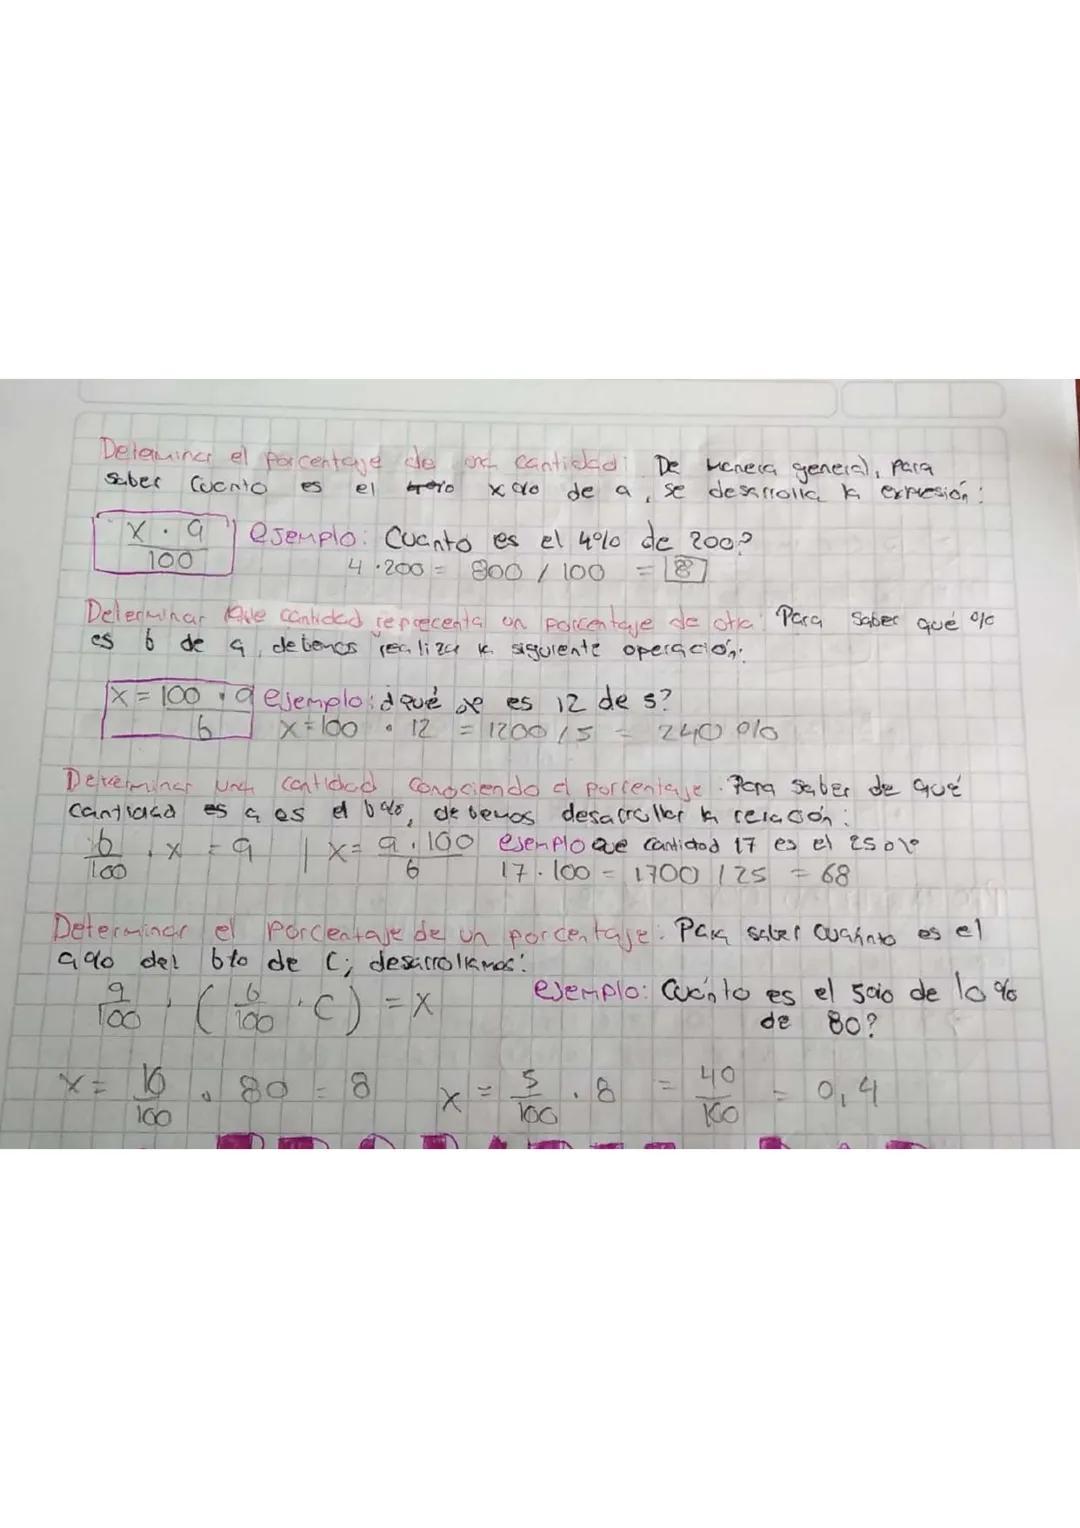 Determinar el porcentaje de una cantidad: De manera general, para
saber cuanto es el x % de a, se desarrolla la expresión:
x · a / 100 ejemplo: Cuanto es el 4% de 200?
4 · 200 = 800 / 100 = 8
Determinar que cantidad reprecenta un porcentaje de otra: Para saber qué %
es b de a, debemos realizar la siguiente operación:
x = 100 · a / b ejemplo: ¿Qué es 12 de 5?
x = 100 · 12 = 1200 / 5 = 240 %
Determinar una cantidad conociendo el porcentaje. Para saber de qué
cantidad es a es el b%, debemos desarrollar la relación:
b/100 · x = a | x = a · 100 / b ejemplo que cantidad 17 es el 25%
17 · 100 = 1700 / 25 = 68
Determinar el porcentaje de un porcentaje: Para saber cuánto es el
a% del b% de C; desarrollamos:
a/100 · (b/100 · C) = x ejemplo: Cuánto es el 5% de 10%
de 80?
x = 10/100 · 80 = 8 x = 5/100 · 8 = 40/100 = 0,4